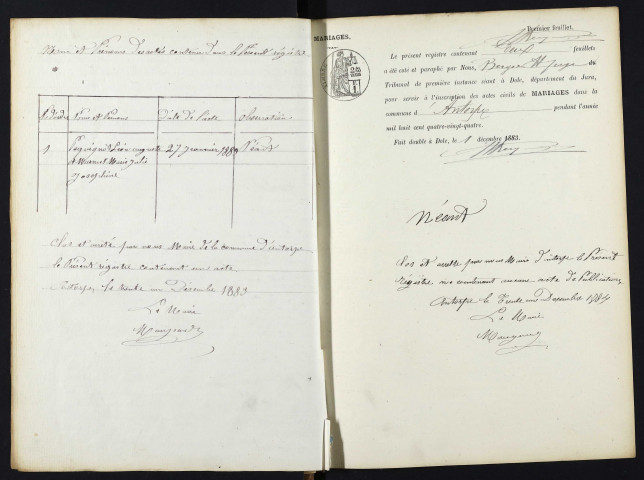 Noms et Prénoms des actes contenu dans le Présent registre
Nom et Prénoms
Date de l'acte
observation
1
Léon auguste
27 Janvier 1883
Néant
et Marie Julie
Josephine
Clos et arrêté par nous Maire de la commune d'antorpe
le Présent registre contenant un acte
Antorpe le trente un Décembre 1883
Le Maire
MARIAGES.
Premier feuillet.
Le présent registre contenant deux feuillets
a été coté et paraphé par Nous, Juge du
Tribunal de première instance séant à Dole, département du Jura,
pour servir à l'inscription des actes civils de MARIAGES dans la
commune d'Antorpe pendant l'année
mil huit cent quatre-vingt-quatre.
Fait double à Dole, le 1 décembre 1883.
Néant
Clos et arrêté par nous Maire d'antorpe le Présent
registre ne contenant aucune acte de Publication
Antorpe le Trente un Décembre 1884
Le Maire